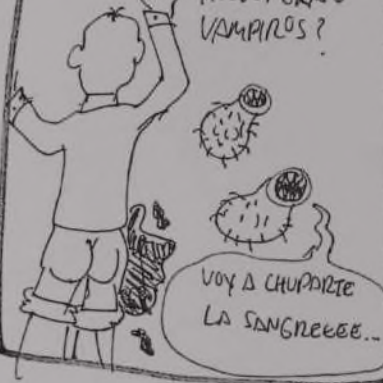 VAMPIROS?
VOY A CHUPARTE
LA SANGREEEE...